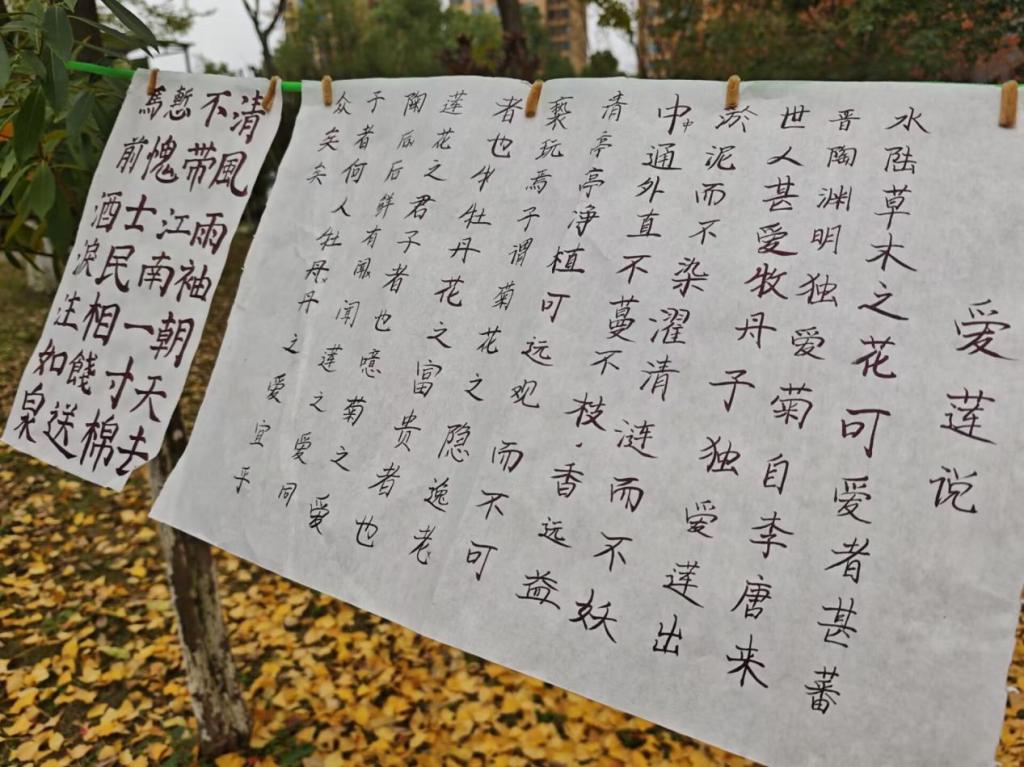 爱莲说
水陆草木之花可爱者甚蕃
晋陶渊明独爱菊自李唐来
世人甚爱牧丹子独爱莲出
於泥而不染濯清涟而不妖
中中通外直不蔓不枝.香远益
清亭亭净植可远观而不可
亵玩焉子谓菊花之隐逸老
者也牛牡丹花之富贵者也
莲花之君子者也噫菊之爱
陶瓜后鲜有闻莲之爱同
于者何人牡丹、丹之爱宜乎
众矣矣
清風雨袖朝天去
不带江南一寸棉
慙愧士民相餞送
馬前酒淚注如泉